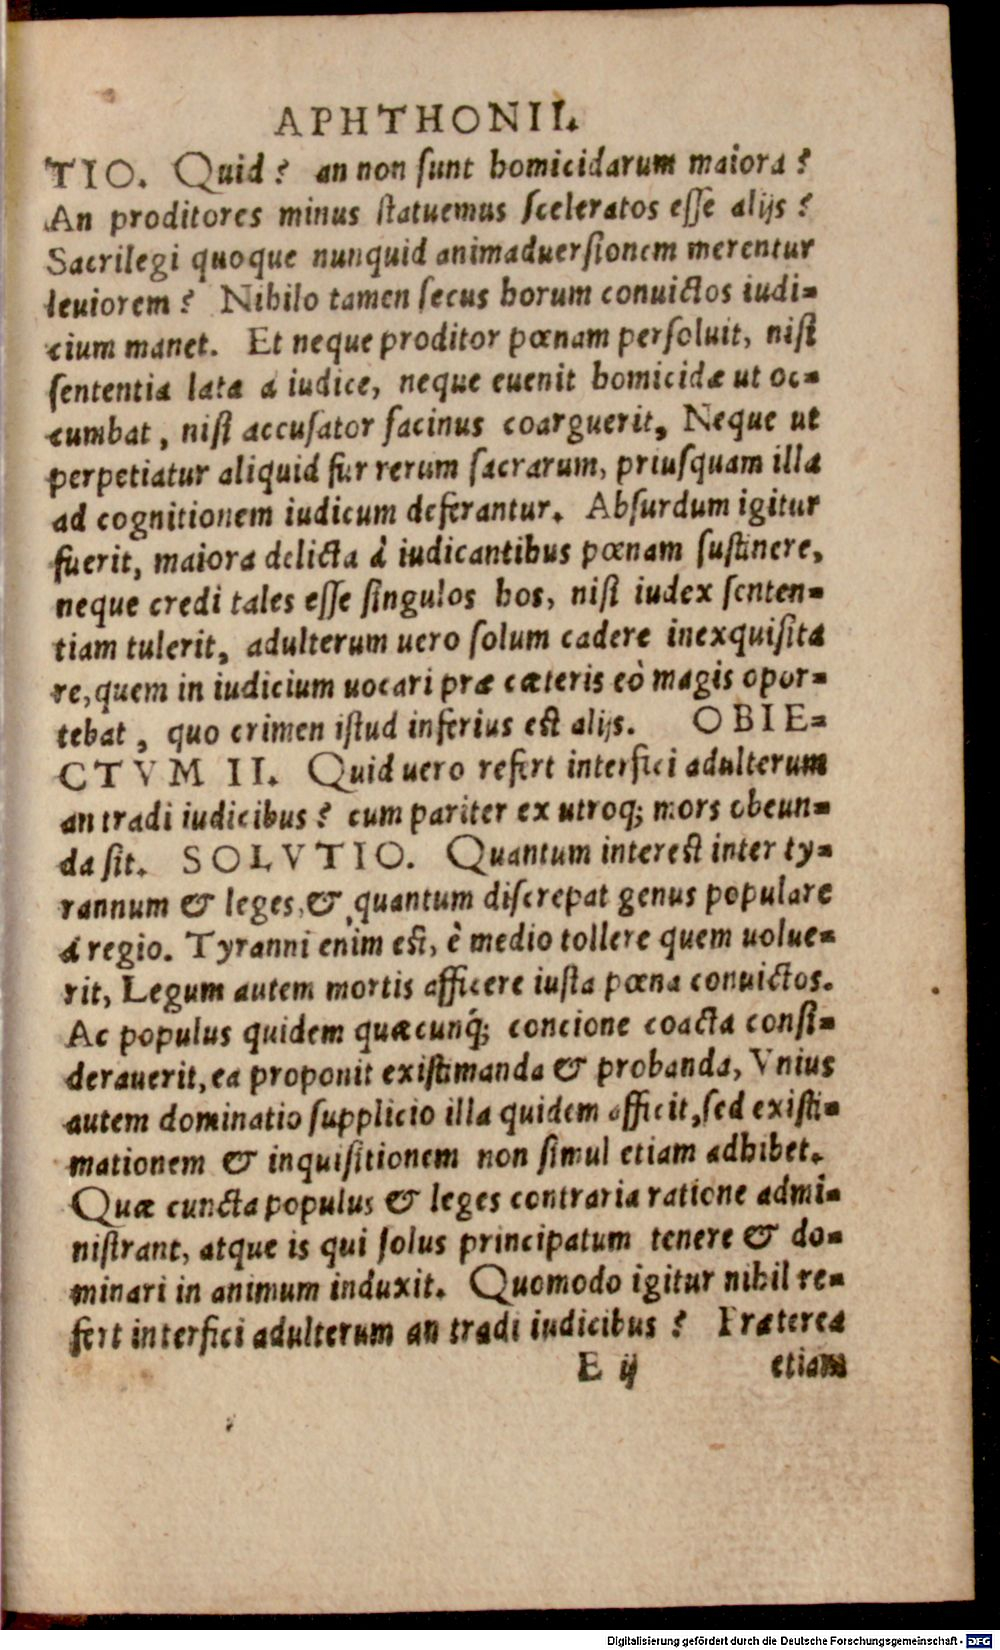 APHTHONII.
TIO. Quid? an non ſunt homicidarum maiora?
An proditores minus ſtatuemus ſceleratos eſſe alijs?
Sacrilegi quoque nunquid animaduerſionem merentur
leuiorem? Nihilo tamen ſecus horum conuictos iudi=
cium manet. Et neque proditor pœnam perſoluit, niſi
ſententia lata a iudice, neque euenit homicidæ ut oc=
cumbat, niſi accuſator facinus coarguerit, Neque ut
perpetiatur aliquid fur rerum ſacrarum, priuſquam illa
ad cognitionem iudicum deferantur. Abſurdum igitur
fuerit, maiora delicta à iudicantibus pœnam ſuſtinere,
neque credi tales eſſe ſingulos hos, niſi iudex ſenten=
tiam tulerit, adulterum uero ſolum cadere inexquiſita
re, quem in iudicium uocari præ cæteris eò magis opor=
tebat, quo crimen iſtud inferius eſt alijs. OBIE=
CTVM II. Quid uero refert interfici adulterum
an tradi iudicibus? cum pariter ex utroq; mors obeun=
da ſit. SOLVTIO. Quantum intereſt inter ty=
rannum & leges, & quantum diſcrepat genus populare
á regio. Tyranni enim eſt, è medio tollere quem uolue=
rit, Legum autem mortis afficere iuſta pœna conuictos.
Ac populus quidem quæcunq́; concione coacta conſi=
derauerit, ea proponit exiſtimanda & probanda, Vnius
autem dominatio ſupplicio illa quidem afficit, ſed exiſti=
mationem & inquiſitionem non ſimul etiam adhibet.
Quæ cuncta populus & leges contraria ratione admi=
niſtrant, atque is qui ſolus principatum tenere & do=
minari in animum induxit. Quomodo igitur nihil re=
fert interfici adulterum an tradi iudicibus? Præterea
E ij etiam
Digitalisierung gefördert durch die Deutsche Forschungsgemeinschaft - DFG